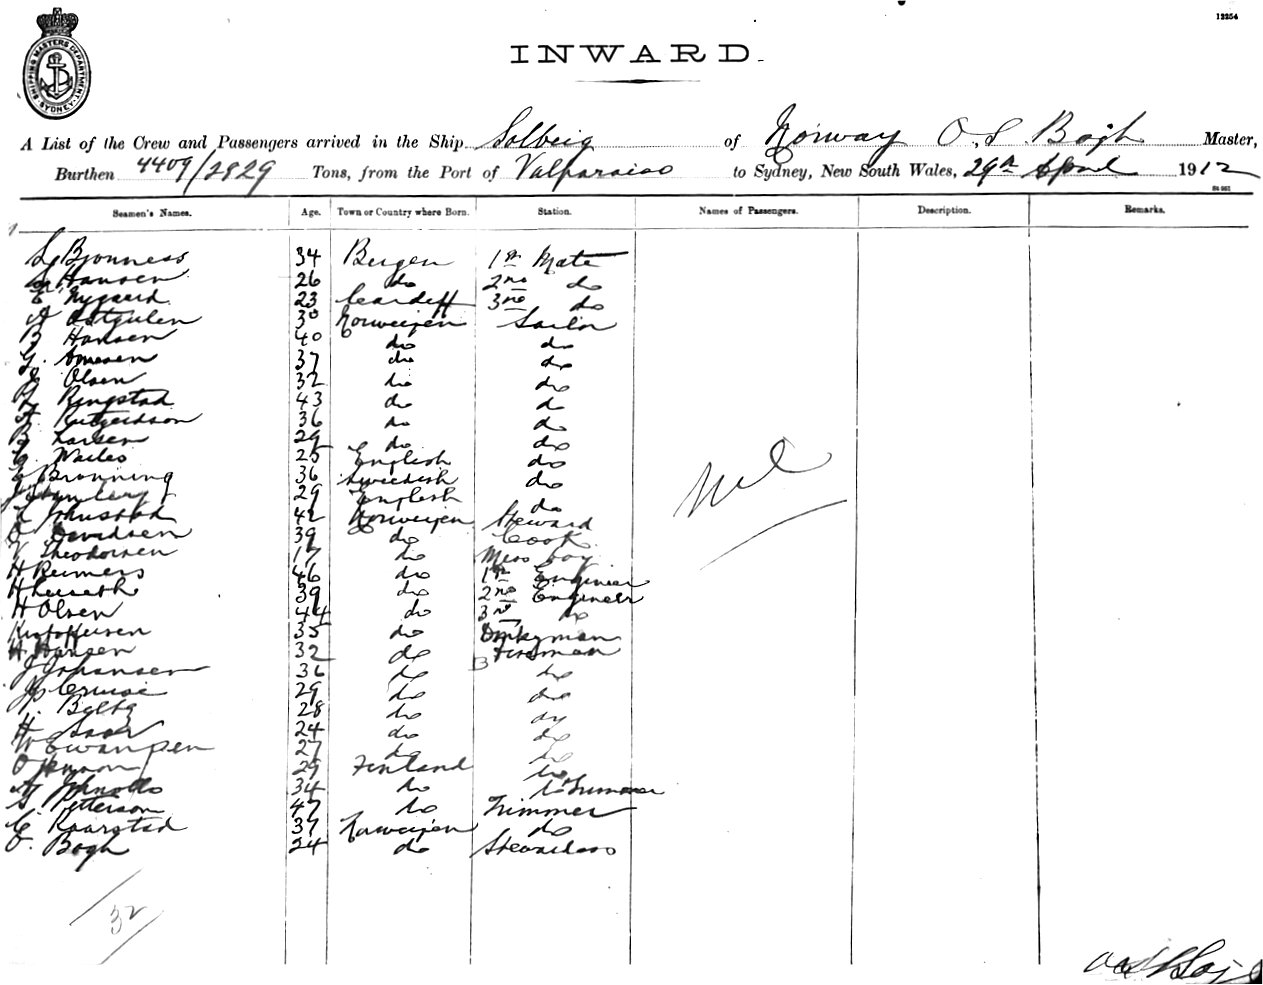 12254
SHIPPING MASTERS DEPARTMENT SYDNEY
INWARD.
A List of the Crew and Passengers arrived in the Ship Solbeig of Norway O. S. Bogh Master,
Burthen 4409/2829 Tons, from the Port of Valparaiso to Sydney, New South Wales, 29th April 1912
Seamen's Names. Age. Town or Country where Born. Station. Names of Passengers. Description. Remarks.
Bjonness 34 Bergen 1st Mate
Hansen 26 do 2nd do
E Nygaard 23 Cardiff 3rd do
Ostgulen 30 Norweijen Sailor
B Hansen 40 do do
G. 37 do do
Olsen 32 do do
Ringstad 43 do do
36 do do
B Larsen 29 do do
Wailes 25 English do
E Bronning 36 Swedish do
29 English do
Johnstad 42 Norweijen Steward
Davidsen 39 do Cook
Theodorsen 17 do Mess boy
H Reimers 46 do 1st Enginier
39 do 2nd Engineer
H Olsen 44 do 3rd do
35 do Donkyman
H. Hansen 32 do Firsman
J Johansen 36 do do
29 do do
28 do do
H 24 do do
27 do do
29 Finland do
34 do do Trimmer
Petterson 47 do Trimmer
C Kaarstad 37 Norweijen do
O. Bogh 24 do Stewardess
Nil
32